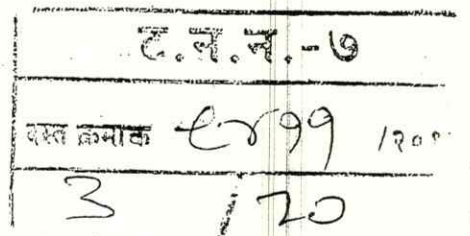 ट.न.न.-७
दस्त क्रमांक ९४११ /२०१
3 / 20